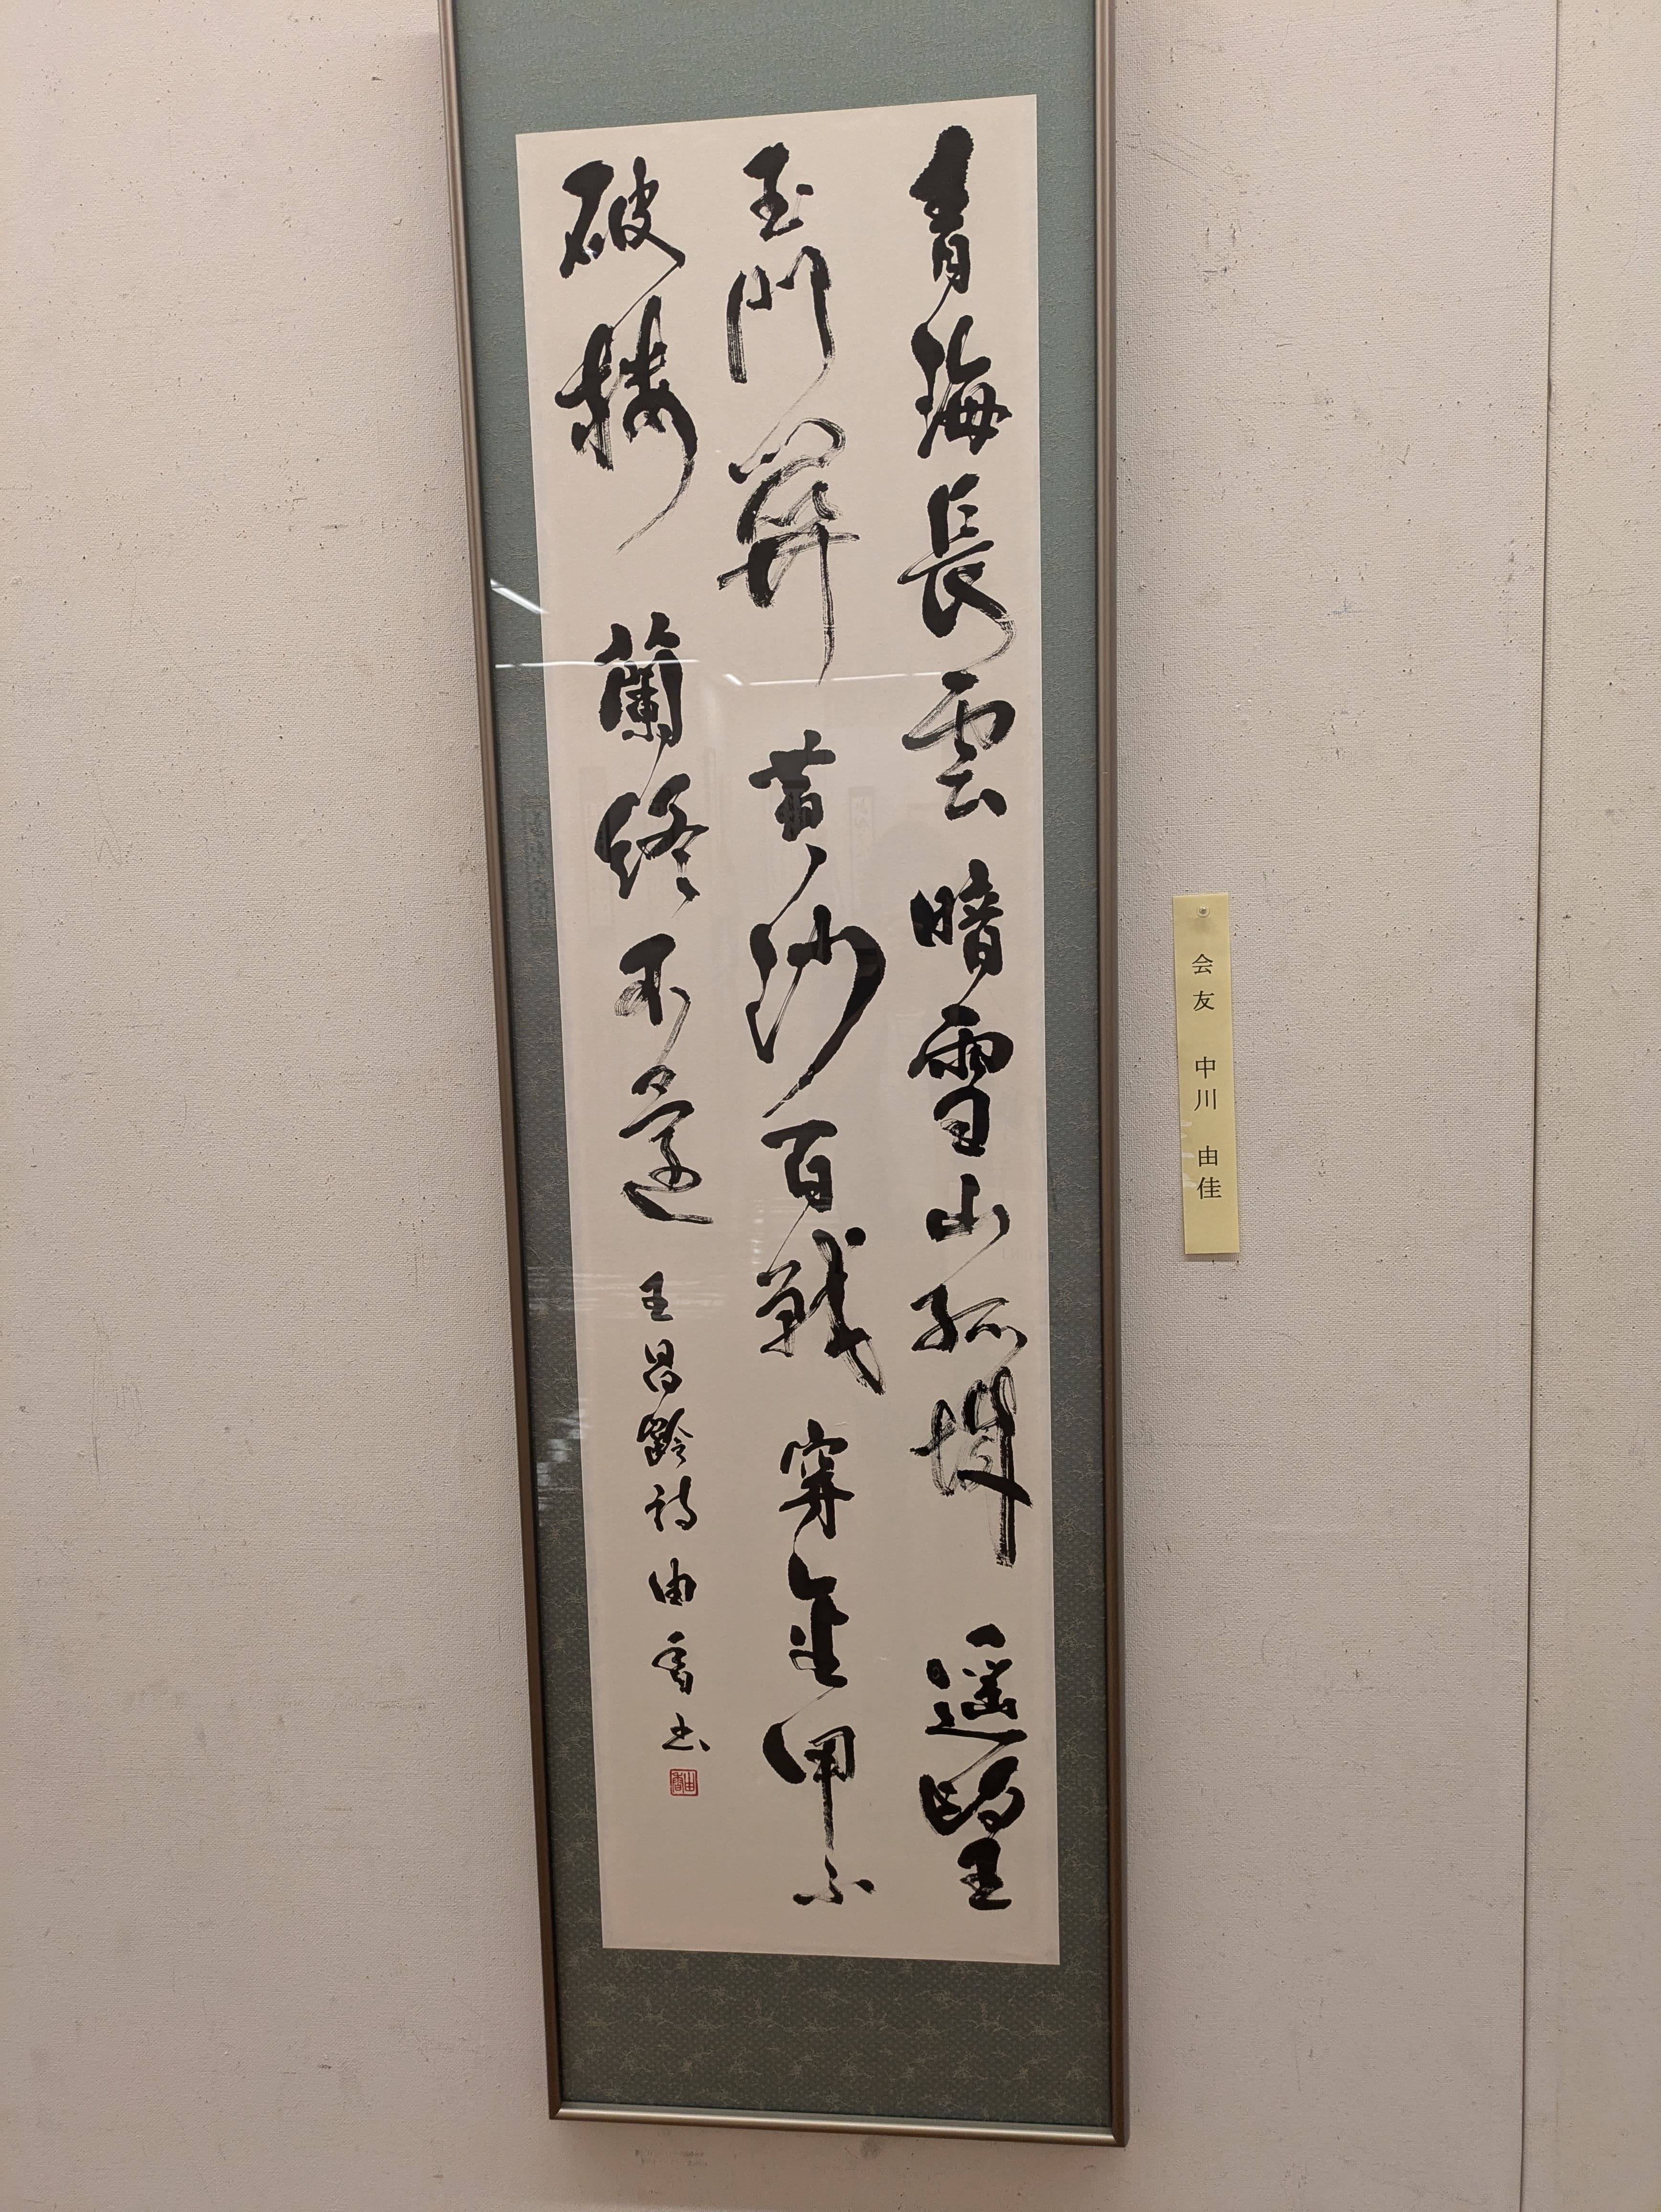 青海長雲暗雪山孤城遥望
玉門關黄沙百戰穿金甲不
破樓蘭終不還 王昌齡詩 由香書
由香
会友 中川 由佳